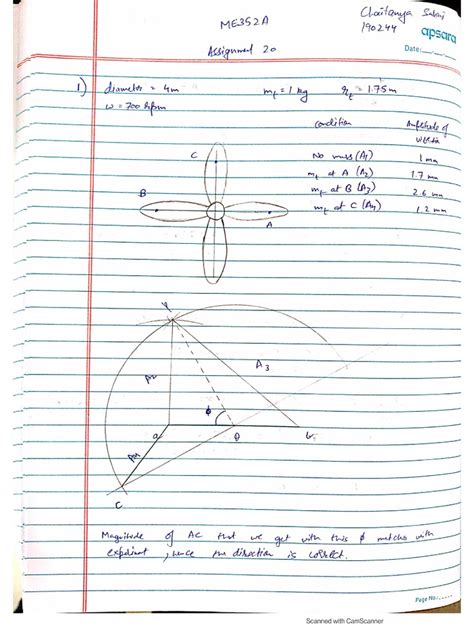 ME352A
Chaitanya
190244
apsara
Assignment 20
Date:
1) diameter = 4m   m_t = 1 kg   r_t = 1.75m
ω = 700 rpm
condition   Amplitude of
No mass (A1)   1 mm
m_t at A (A2)   1.7 mm
m_t at B (A3)   2.6 mm
m_t at C (A4)   1.2 mm
C
B
A
A3
φ
a
O
A4
C
Magnitude of AC that we get with this φ matches with
expriment, hence our direction is correct.
Page No.:
Scanned with CamScanner